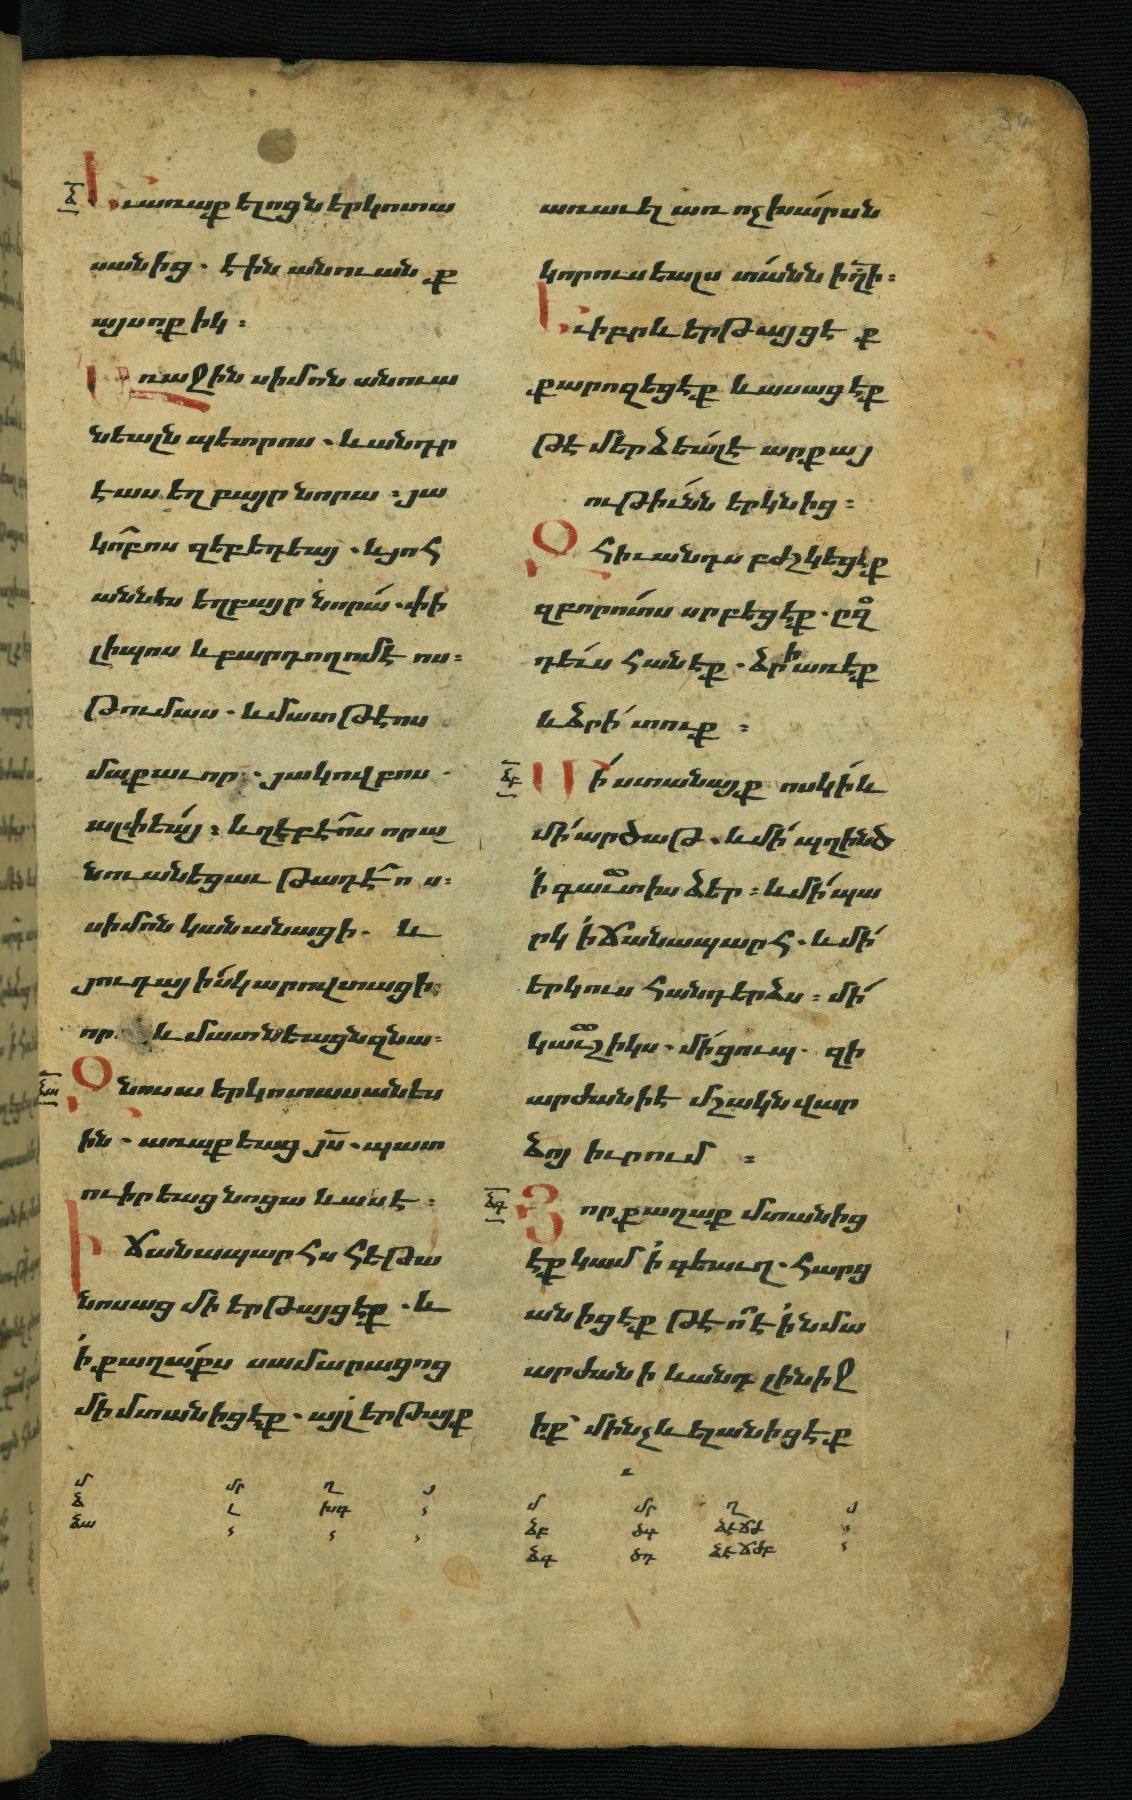 Ճ
Եւ առաքելոցն երկոտա
սանից. էին անուանք
այսոքիկ:
Առաջին սիմոն անուա
նեալն պետրոս. և անդր
էաս եղբայր նորա: յա
կոբոս զեբեդեայ. և յոհ
աննես եղբայր նորա. փի
լիպոս և բարդողոմէոս:
Թումաս. և մատթէոս
մաքաւոր. յակովբոս.
ալփեայ: և ղեբէոս որ ա
նուանեցաւ թադէոս:
սիմոն կանանացի. և
յուդայ իսկարովտացի
որ և մատնեացն զնա:
ՃԱ
Զնոսա երկոտասանես
ին. առաքեաց յս. պատ
ուիրեաց նոցա և ասէ:
Ի ճանապարհս հեթա
նոսաց մի երթայցէք. և
ի քաղաքս սամարացոց
մի մտանիցէք. այլ երթայք
առաւել առ ոչխարսն
կորուսեալս տանն իղի:
Եւ իբրև երթայցէք
քարոզեցէք և ասացէք
թէ մերձեալ է արքայ
ութիւնն երկնից:
Զհիւանդս բժշկեցէք
զբորոտս սրբեցէք. ըզ
դեւս հանէք. ձրի առէք
և ձրի տուք:
ՃԲ
Մի ստանայք ոսկի և
մի արծաթ. և մի պղինձ
ի գաւտիս ձեր: և մի պա
րկ ի ճանապարհ. և մի
երկուս հանդերձս: մի
կաւշիկս. մի ցուպ. զի
արժանի է մշակն վար
ձոյ իւրում:
ՃԳ
Յոր քաղաք մտանից
էք կամ ի գեաւղ. հարց
անիցէք թէ ո է ի նմա
արժանի և անդ լինիջ
իք մինչև ելանիցէք
մ մր ղ յ
ճ լ խդ
ճա
մ մր ղ յ
ճբ ծգ
ճգ ծդ